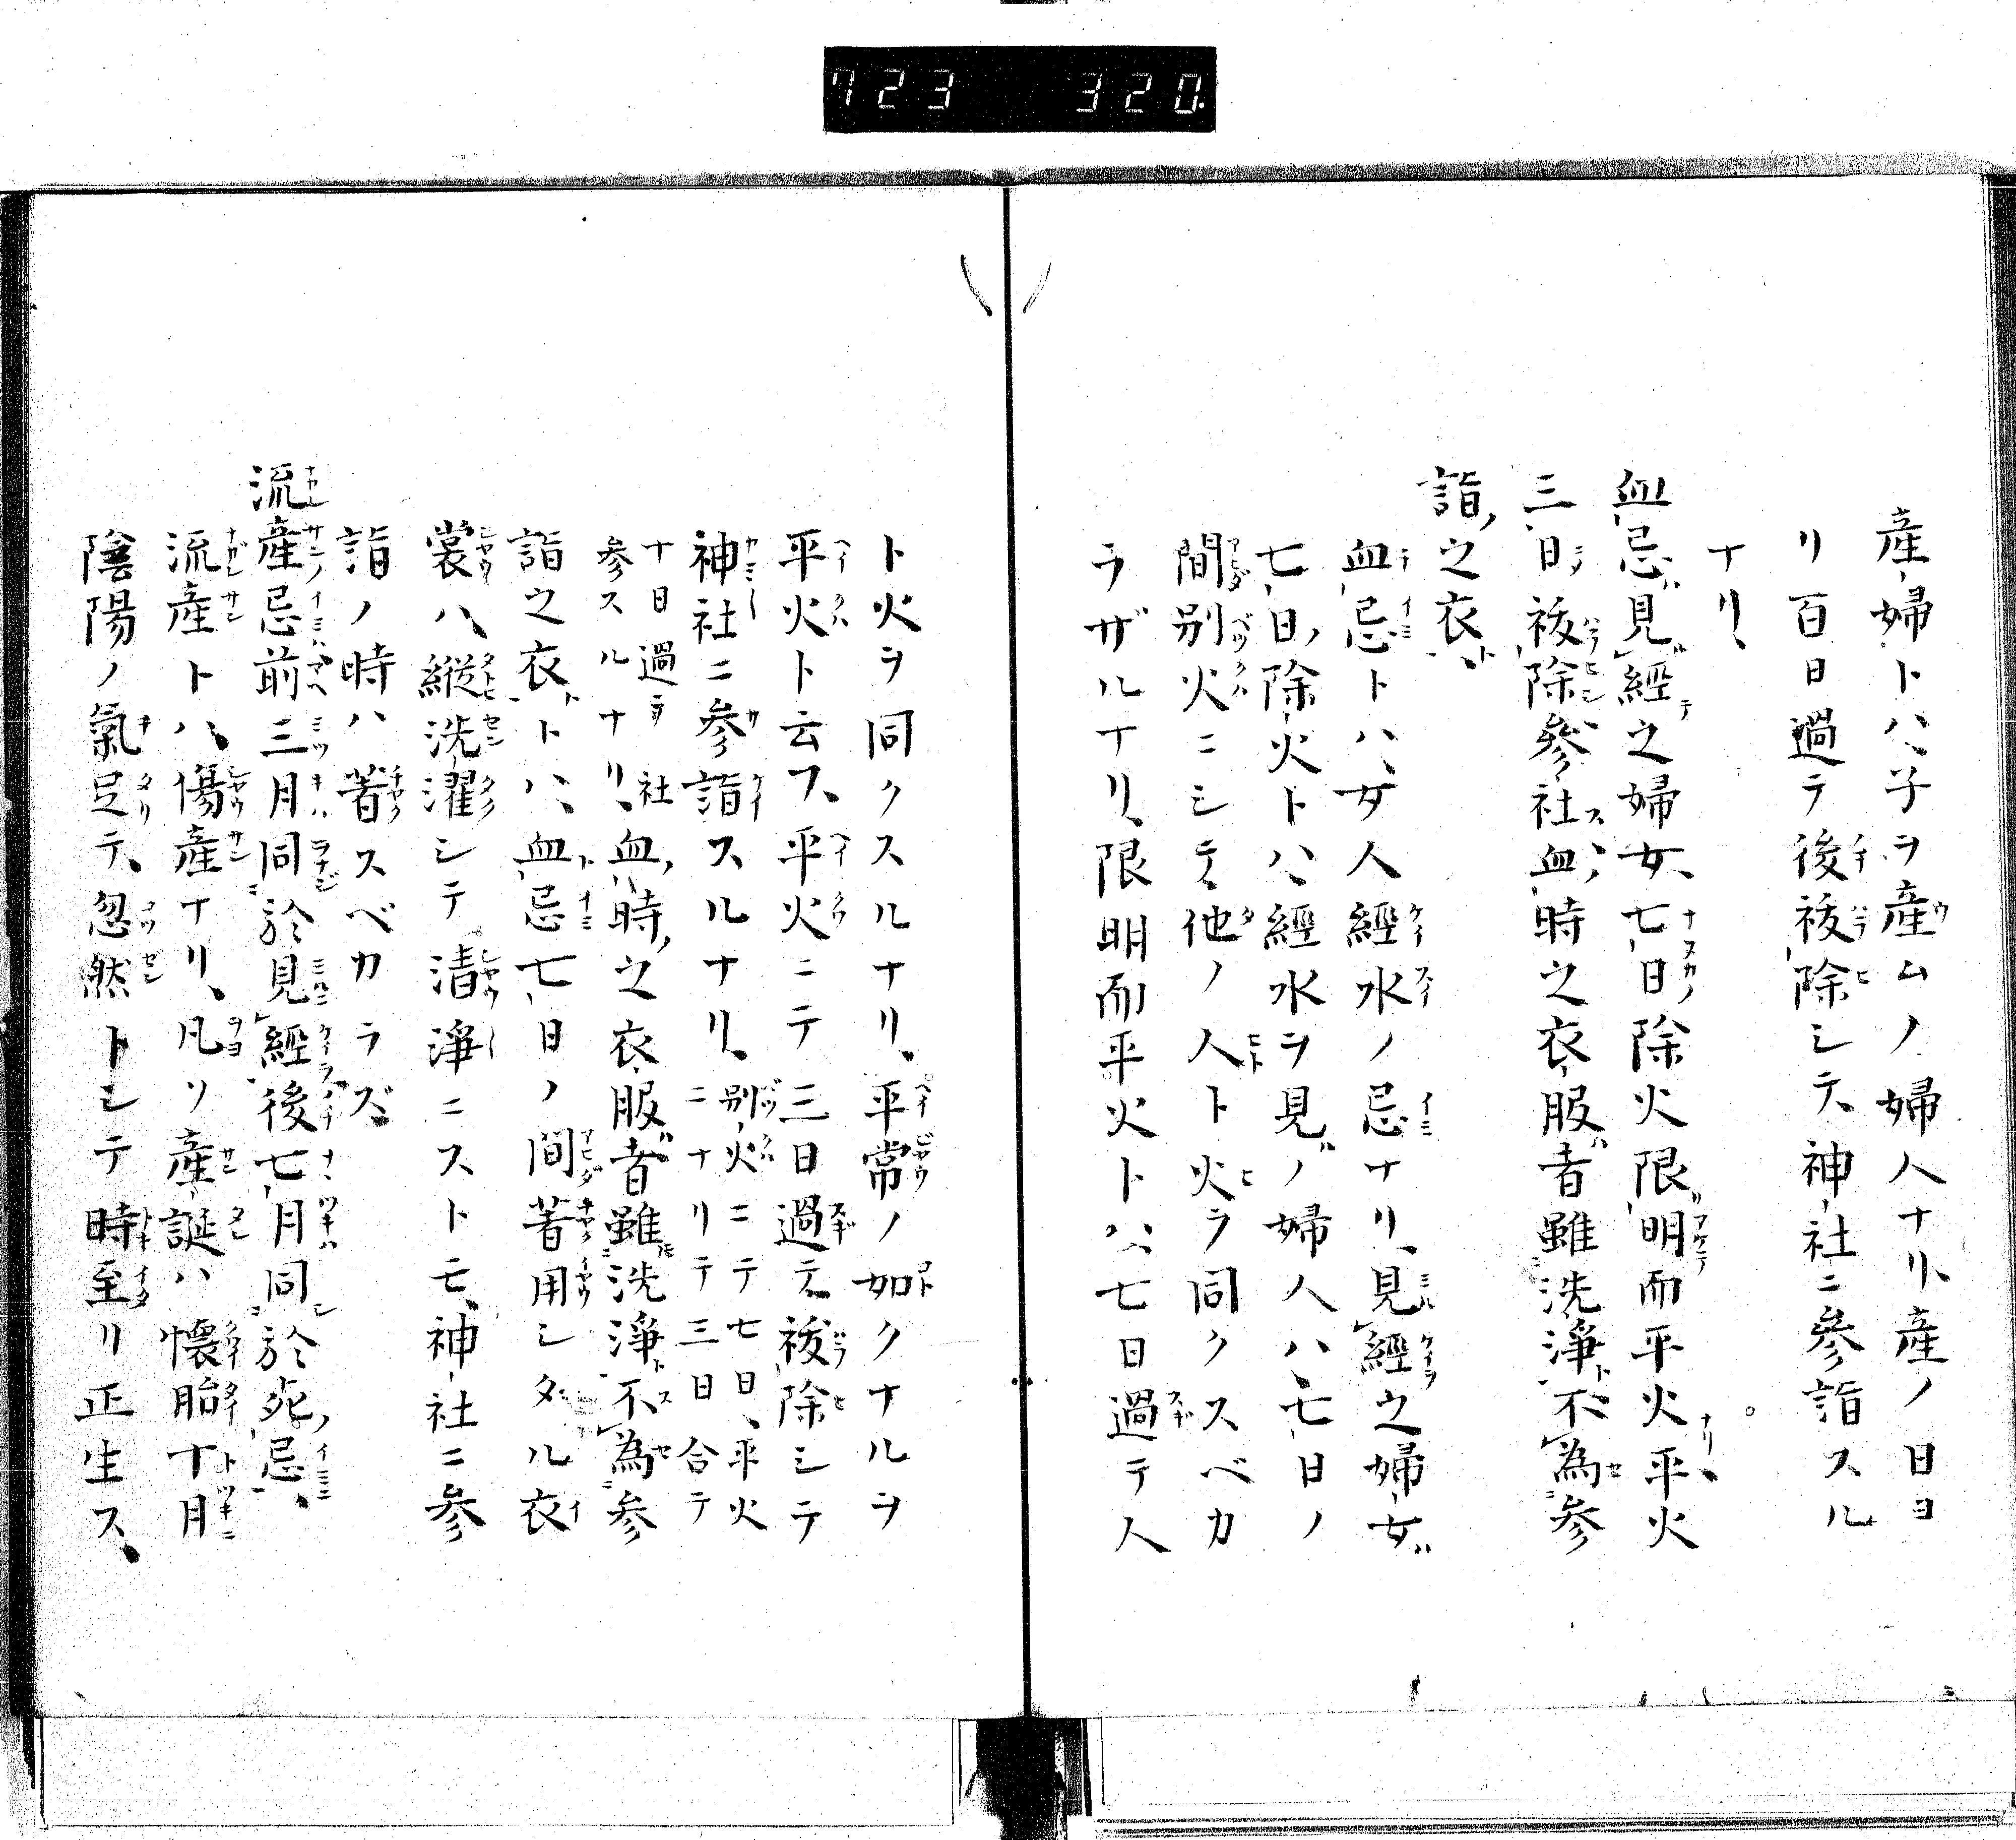 723 320.
産婦トハ、子ヲ産ムノ婦人ナリ、産ノ日ヨ
リ百日過テ後祓除シテ、神社ニ參詣スル
ナリ、
血忌、見經之婦女、七日除火限明而平火平火
三日、祓除參社、血時之衣服者雖洗淨不為参
詣之衣、
血忌トハ、女人經水ノ忌ナリ、見經之婦女
七日除火トハ、經水ヲ見ノ婦人ハ、七日ノ
間別火ニシテ、他ノ人ト火ヲ同クスベカ
ラザルナリ、限明而平火トハ、七日過テ人
ト火ヲ同クスルナリ、平常ノ如クナルヲ
平火ト云フ、平火ニテ三日過テ、祓除シテ
神社ニ参詣スルナリ、別火ニテ七日、平火
ニナリテ三日合テ
十日過テ社
参スルナリ、血時之衣服者雖洗淨不為参
詣之衣トハ、血忌七日ノ間著用シタル衣
裳ハ、縦洗濯シテ清淨ニストモ、神社ニ参
詣ノ時ハ著スベカラズ
流産忌前三月同於見經後七月同於死忌、
流産トハ、傷産ナリ、凡ソ産誕ハ懐胎十月
陰陽ノ氣足テ、忽然トシテ時至リ正生ス、